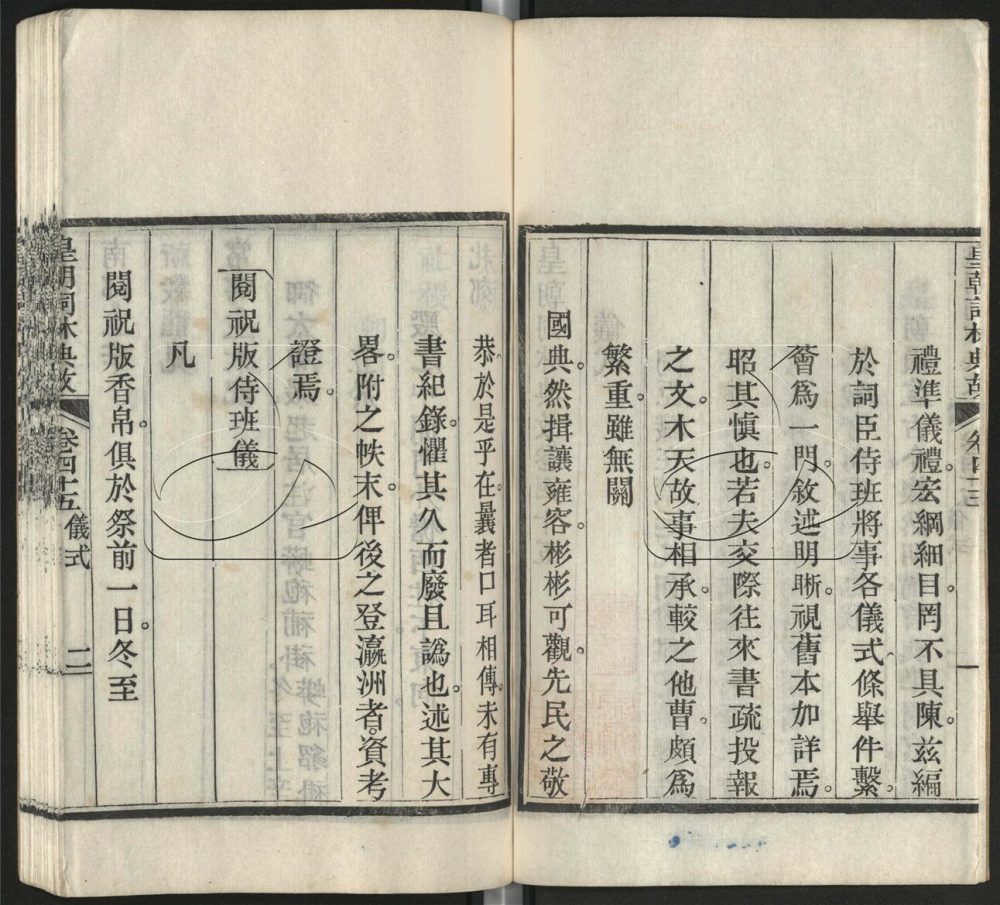 皇朝詞林典故 卷四十三 一
禮準儀禮。宏綱細目。罔不具陳。茲編
於詞臣侍班將事各儀式條舉件繫。
薈爲一門。敘述明晰。視舊本加詳焉。
昭其愼也。若夫交際往來書疏投報
之文。木天故事相承。較之他曹。頗爲
繁重。雖無關
國典。然揖讓雍容。彬彬可觀。先民之敬
恭於是乎在。曩者口耳相傳。未有專
書紀錄。懼其久而廢且譌也。述其大
畧。附之帙末。俾後之登瀛洲者。資考
證焉。
閱祝版侍班儀
凡
閱祝版香帛。俱於祭前一日。冬至
皇朝詞林典故 卷四十三 儀式 二